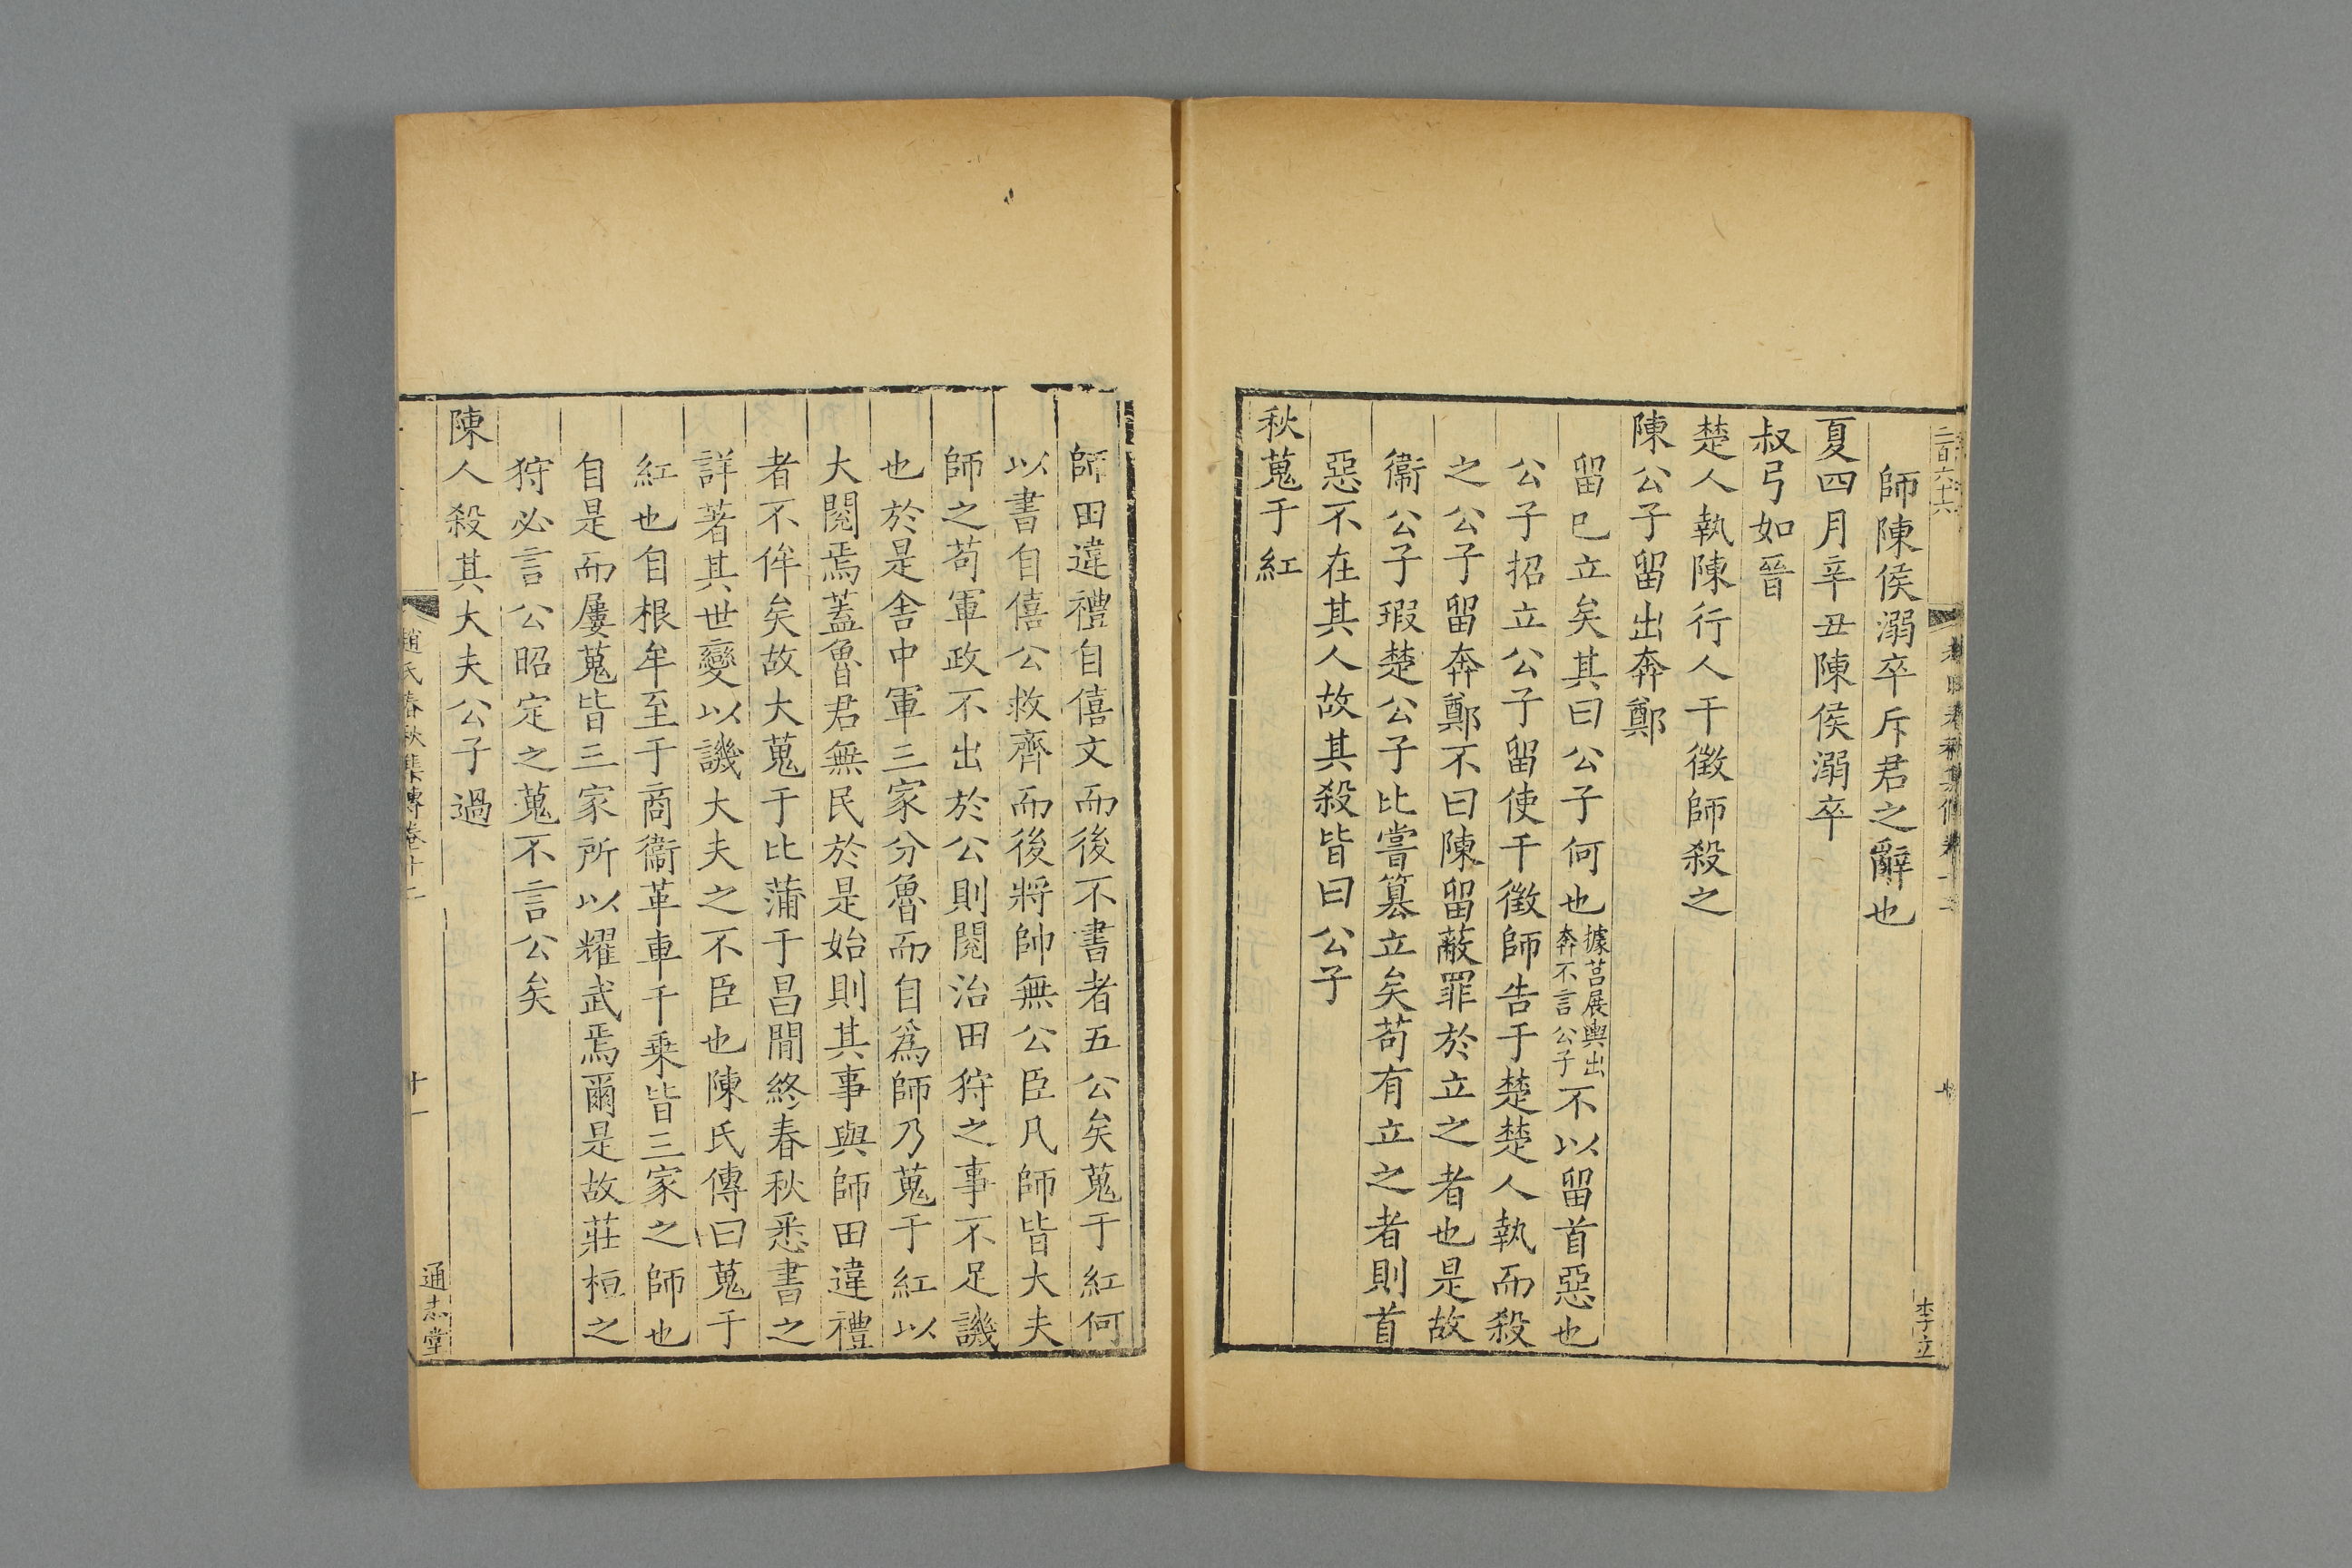 二百六十六
李立
師陳侯溺卒斥君之辭也
夏四月辛丑陳侯溺卒
叔弓如晉
楚人執陳行人干徵師殺之
陳公子留出奔鄭
留已立矣其曰公子何也據莒展輿出奔不言公子不以留首惡也
公子招立公子留使干徵師告于楚楚人執而殺
之公子留奔鄭不曰陳留蔽罪於立之者也是故
衞公子瑕楚公子比嘗篡立矣苟有立之者則首
惡不在其人故其殺皆曰公子
秋蒐于紅
師田違禮自僖文而後不書者五公矣蒐于紅何
以書自僖公救齊而後將帥無公臣凡師皆大夫
師之苟軍政不出於公則閱治田狩之事不足譏
也於是舍中軍三家分魯而自爲師乃蒐于紅以
大閱焉蓋魯君無民於是始則其事與師田違禮
者不侔矣故大蒐于比蒲于昌閒終春秋悉書之
詳著其世變以譏大夫之不臣也陳氏傳曰蒐于
紅也自根牟至于商衞革車千乗皆三家之師也
自是而屢蒐皆三家所以耀武焉爾是故莊桓之
狩必言公昭定之蒐不言公矣
陳人殺其大夫公子過
趙氏春秋集傳卷十二
十一
通志堂